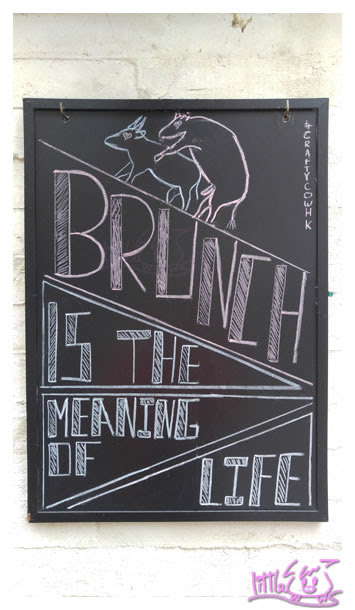 #CRAFTYCOWHK
BRUNCH
IS THE
MEANING
OF
LIFE